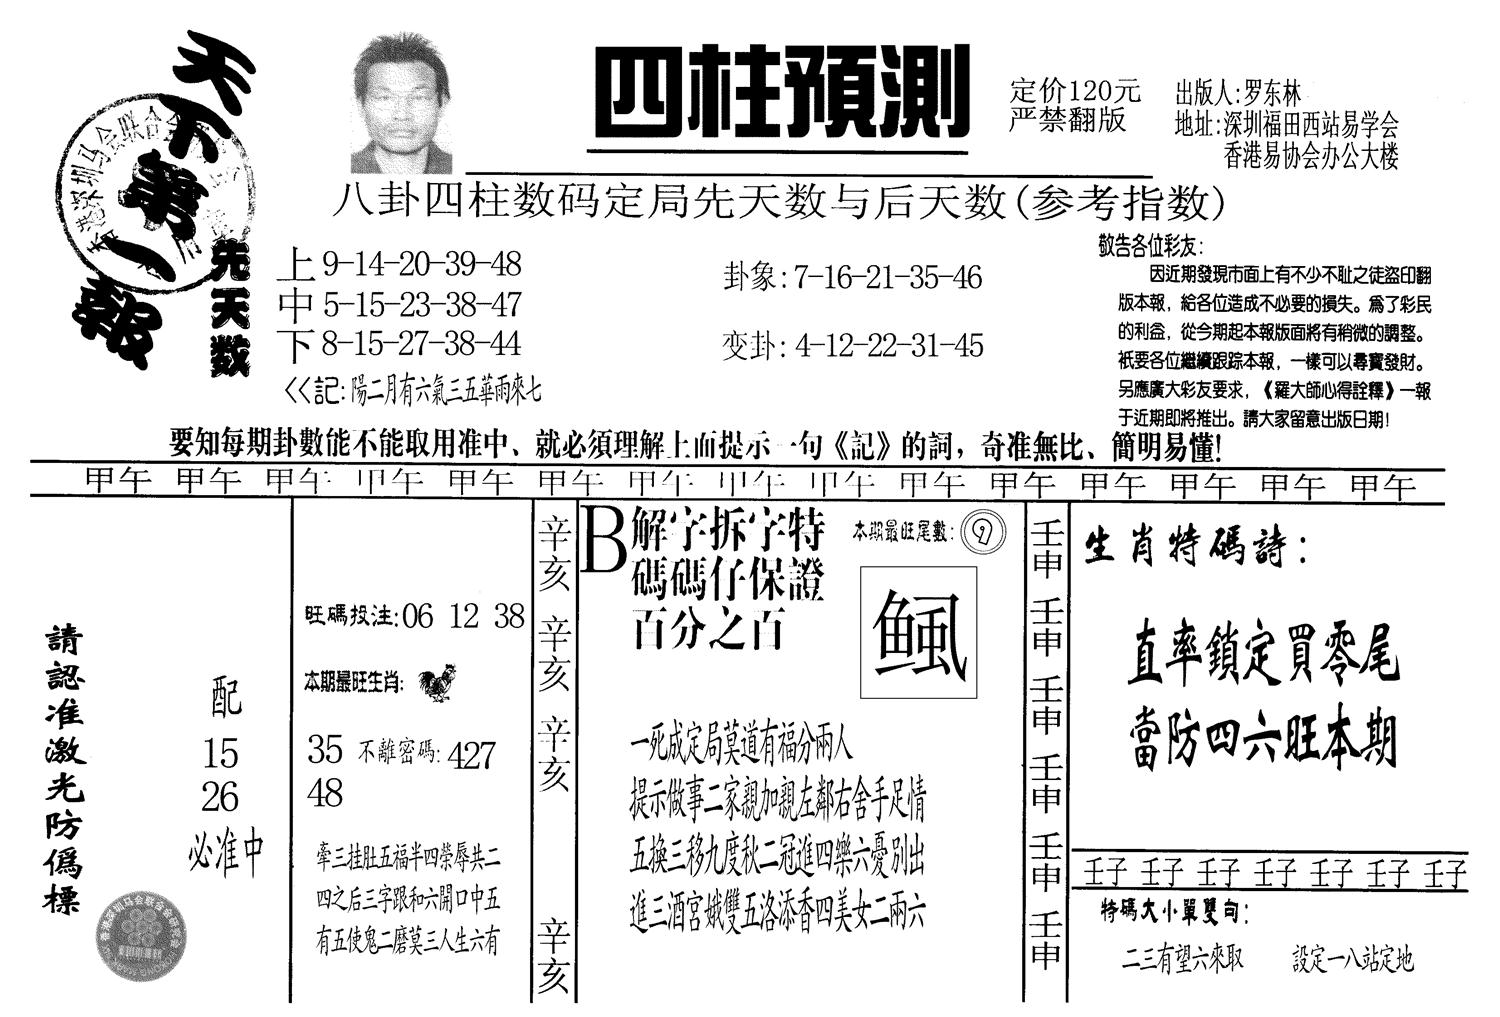 天下第一報
四柱預測
定价120元
严禁翻版
出版人:罗东林
地址:深圳福田西站易学会
香港易协会办公大楼
八卦四柱数码定局先天数与后天数(参考指数)
先天数
上 9-14-20-39-48
中 5-15-23-38-47
下 8-15-27-38-44
卦象: 7-16-21-35-46
变卦: 4-12-22-31-45
<<記: 陽二月有六氣三五華雨來七
敬告各位彩友:
因近期發現市面上有不少不恥之徒盜印翻
版本報, 給各位造成不必要的損失。爲了彩民
的利益, 從今期起本報版面將有稍微的調整。
衹要各位繼續跟踪本報, 一樣可以尋寶發財。
另應廣大彩友要求, 《羅大師心得詮釋》一報
于近期即將推出。請大家留意出版日期!
要知每期卦數能不能取用准中、就必須理解上面提示一句《記》的詞, 奇准無比、簡明易懂!
甲午 甲午 甲午 甲午 甲午 甲午 甲午 甲午 甲午 甲午 甲午 甲午 甲午 甲午 甲午
請認准激光防僞標
配
15
26
必准中
旺碼投注:06 12 38
本期最旺生肖:
35 不離密碼: 427
48
牽三挂肚五福半四榮辱共二
四之后三字跟和六開口中五
有五使鬼二磨莫三人生六有
辛亥 辛亥 辛亥 辛亥
B解字拆字特
碼碼仔保證
百分之百
本期最旺尾數: 9
一死成定局莫道有福分兩人
提示做事二家親加親左鄰右舍手足情
五換三移九度秋二冠進四樂六憂別出
進三酒宮娥雙五洛添香四美女二兩六
壬申 壬申 壬申 壬申 壬申 壬申
生肖特碼詩:
直率鎖定買零尾
當防四六旺本期
壬子 壬子 壬子 壬子 壬子 壬子 壬子
特碼大小單雙句:
二三有望六來取 設定一八站定地